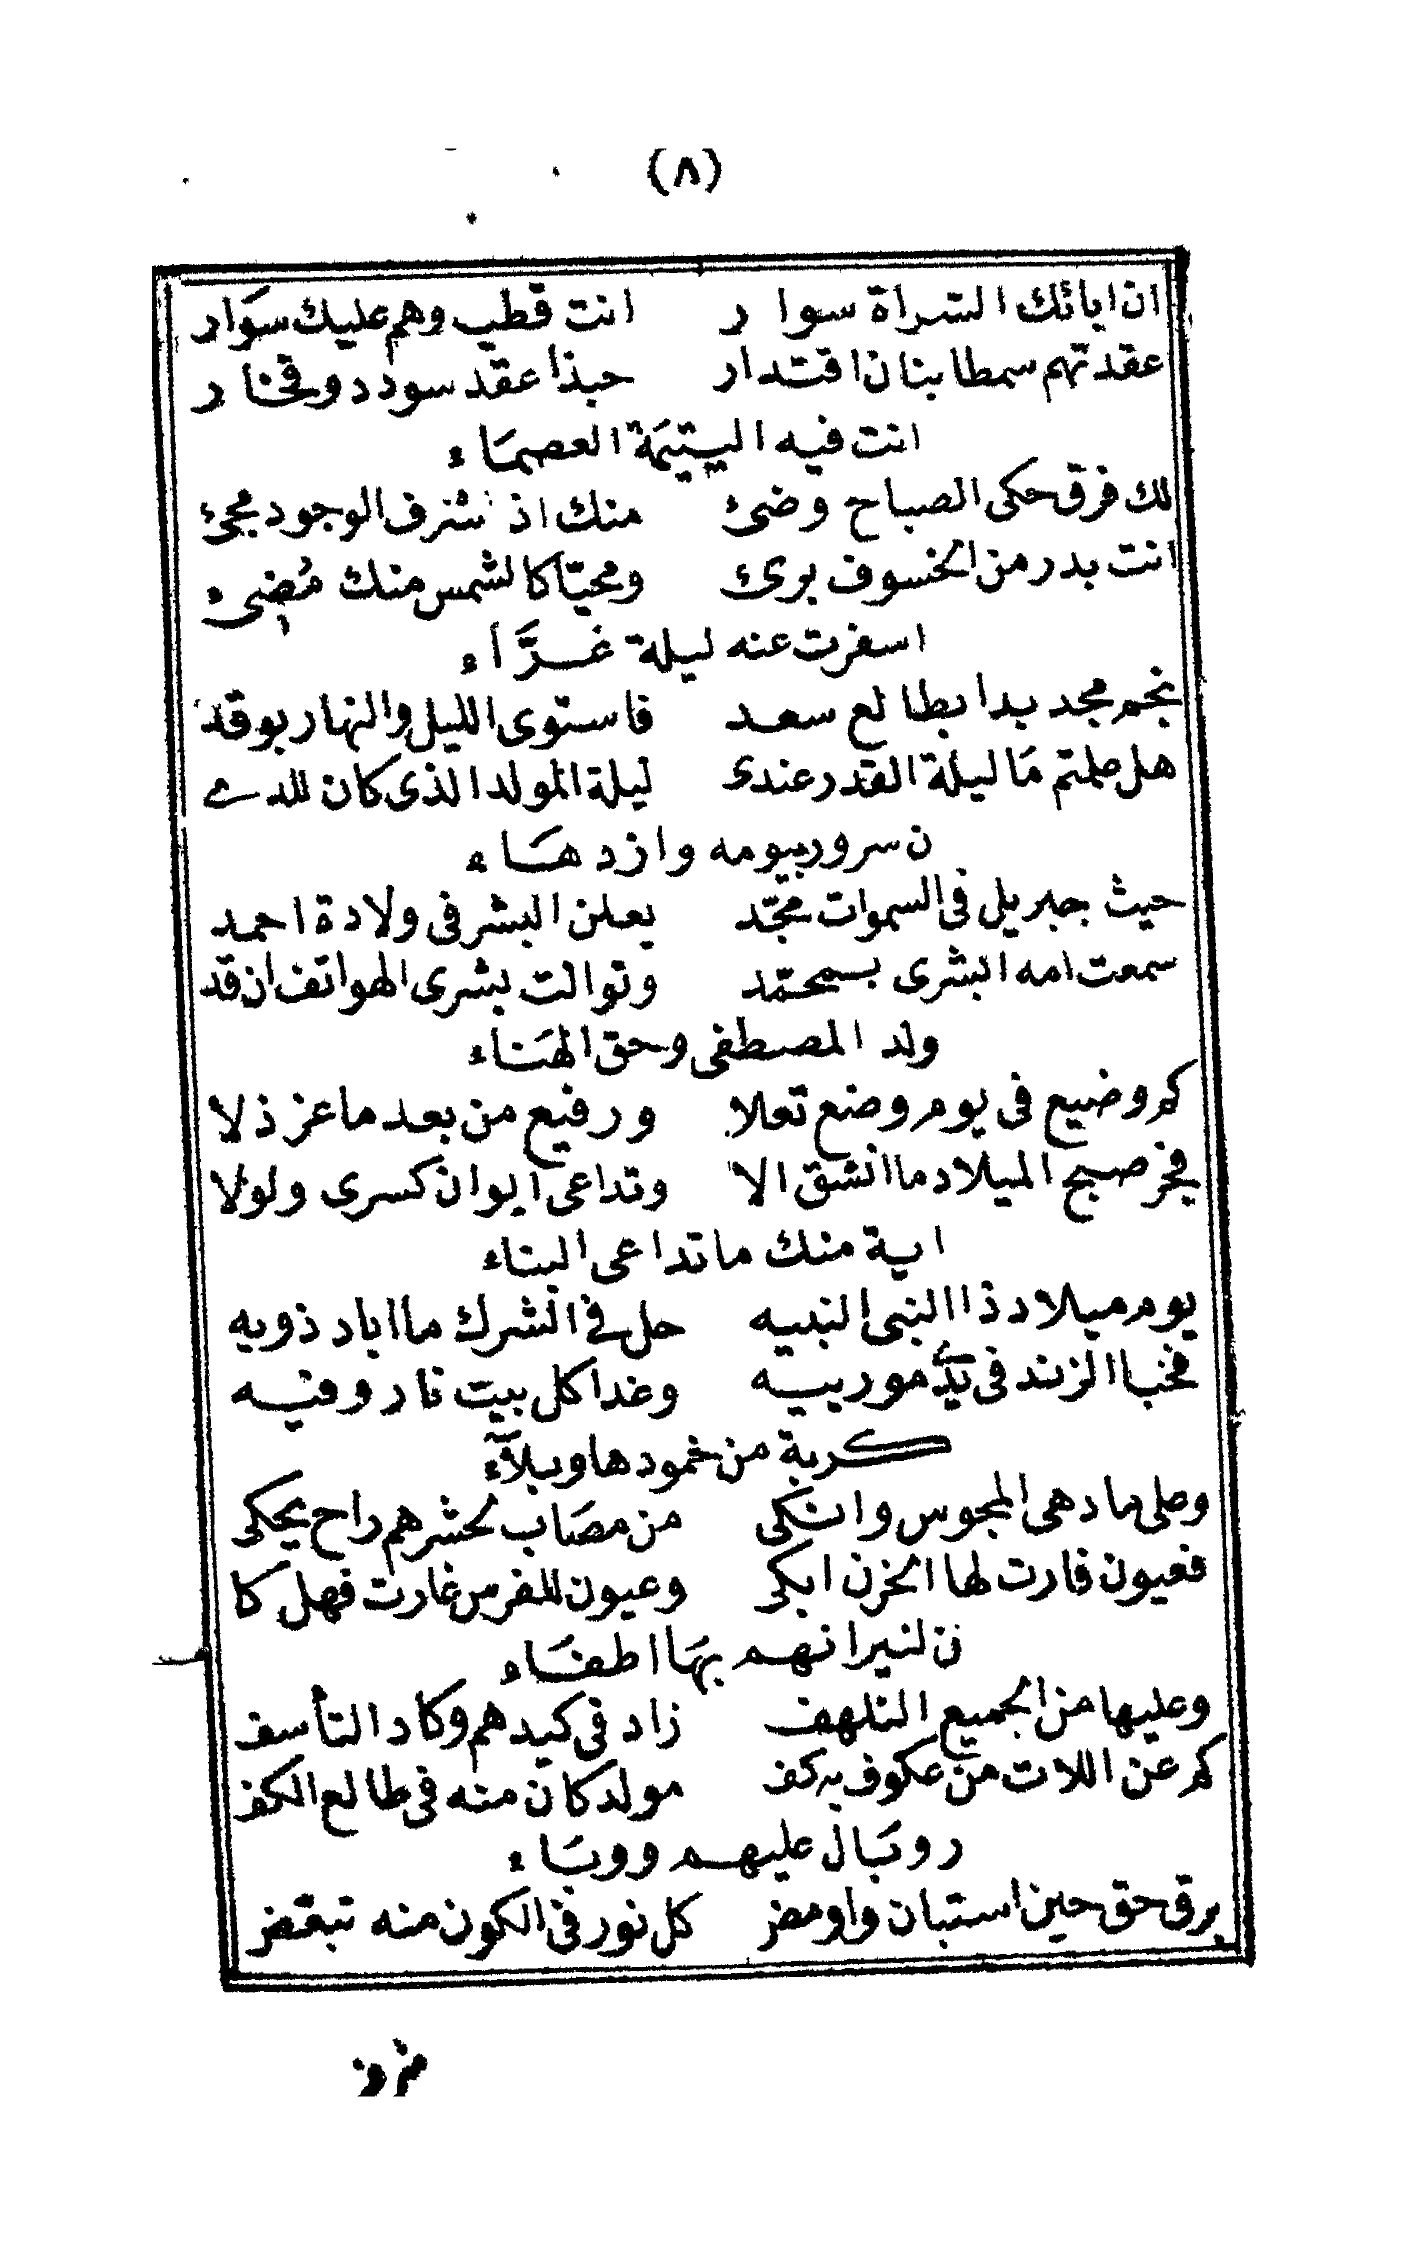 (٨)
ان ابائك السراة سوا ر انت قطب وهم عليك سوار
عقدتهم سمطا بنان اقتدار حبذا عقد سودد وفخار
انت فيه اليتيمة العصماء
لك فرق حكى الصباح وضئ منك اذ شرف الوجود مجئ
انت بدر من الخسوف برئ ومحيّا كالشمس منك مُضىء
اسفرت عنه ليلة غرَّاء
نجم مجد بدا بطالع سعد فاستوى الليل والنهار بوقد
هل علمتم مَا ليلة القدر عندى ليلة المولد الذى كان للدى
ن سرور بيومه وازدهاء
حيث جبريل فى السموات مجّد يعلن البشر فى ولادة احمد
سمعت امه البشرى بمحمّد وتوالت بشرى الهواتف ان قد
ولد المصطفى وحق الهناء
كم وضيع فى يوم وضع تعلا ورفيع من بعد ما عز ذلا
فجر صبح الميلاد ما انشق الا وتداعى ايوان كسرى ولولا
اية منك ما تداعى البناء
يوم ميلاد ذا النبى النبيه حل فى الشرك ما اباد ذويه
فخبا الزند فى يدى موريه وغدا كل بيت نار وفيه
كربة من خمودها وبلآء
وعلى ما دهى المجوس وانكى من مصَاب لحشرهم راح يحكى
فعيون فارت لها الحزن ابكى وعيون للفرس غارت فهل كا
ن لنيرانهم بهَا اطفَاء
وعليها من الجميع التلهف زاد فى كيدهم وكاد التأسف
كم عن اللات من عكوف به كف مولد كان منه فى طالع الكف
ر وبَال عليهم ووبَاء
برق حق حين استبان واومض كل نور فى الكون منه تبعض